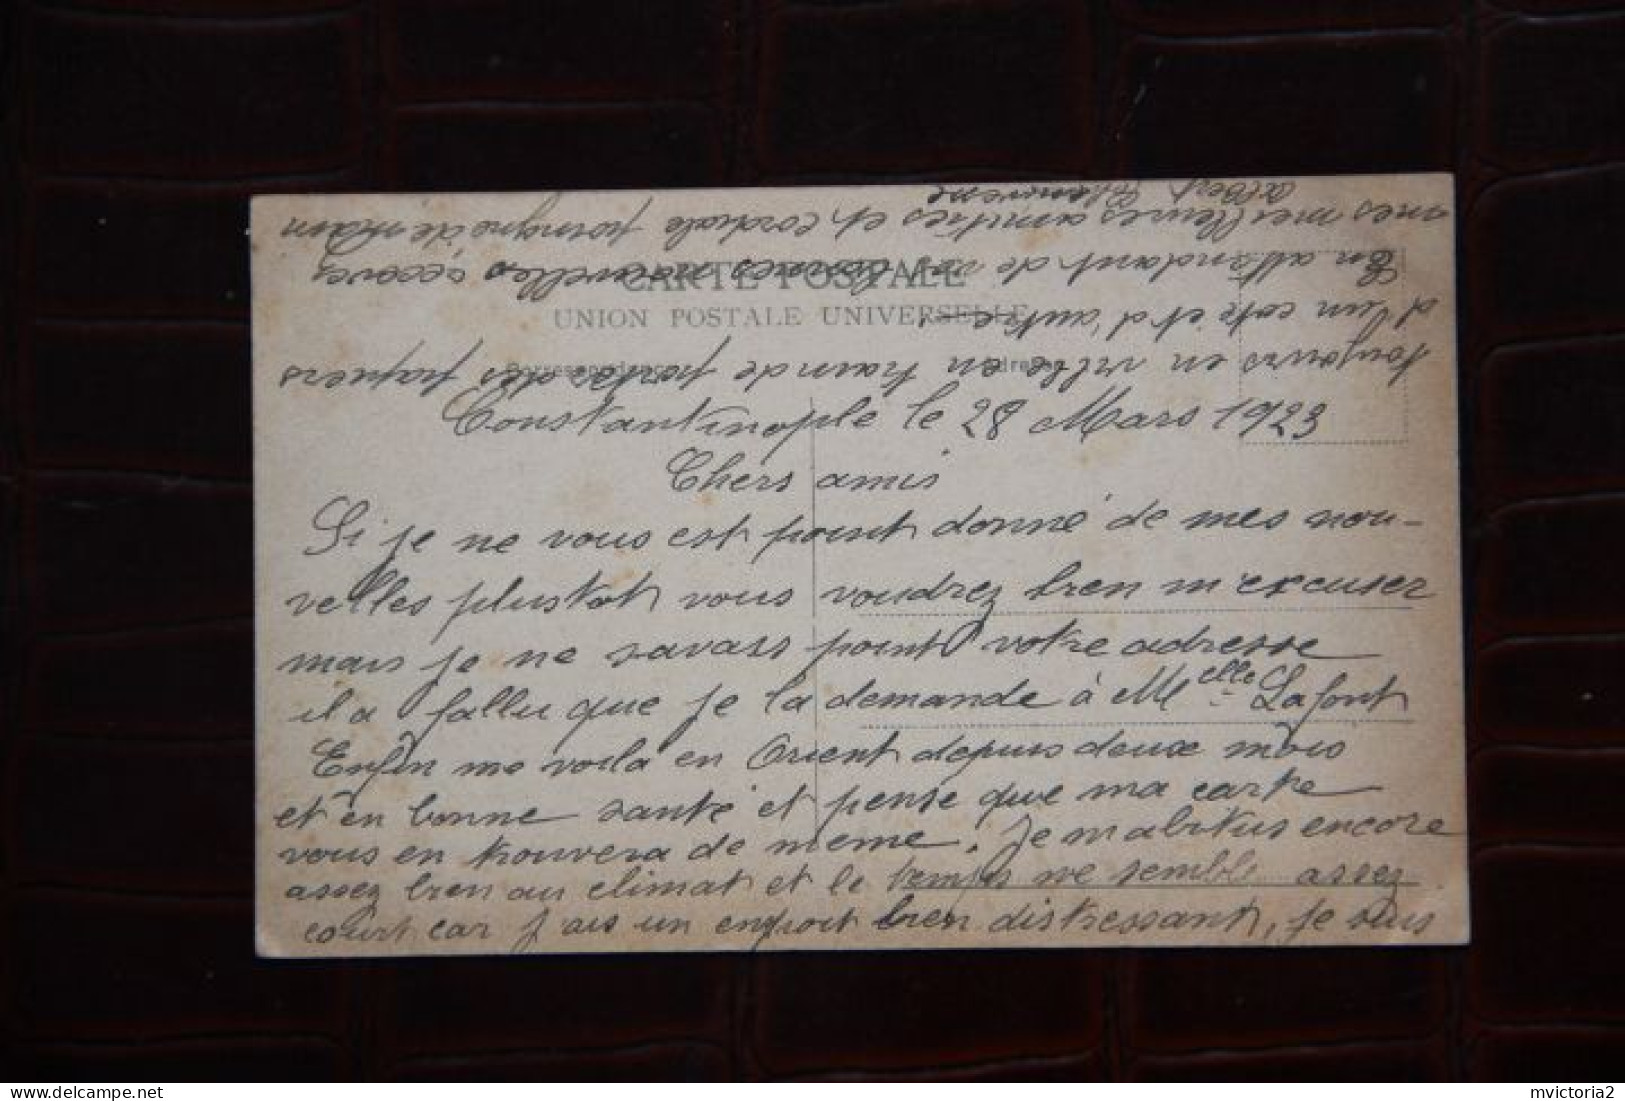 CARTE POSTALE
UNION POSTALE UNIVERSELLE
Correspondance
Adresse
Constantinople le 28 Mars 1923
Chers amis
Si je ne vous est point donné de mes nou-
velles plustôt vous voudrez bien m'excuser
mais je ne savais point votre adresse
il a fallu que je la demande à Melle Lafont
Enfin me voila en Orient depuis deux mois
et en bonne santé et pense que ma carte
vous en trouvera de meme. Je m'abitus encore
assez bien au climat et le temps me semble assez
court car j'ais un enploit bien distressant, je suis
toujours en ville en train de portes des papiers
d'un coté et d'autre.
En attendant de vos bonnes nouvelles recevez
mes meilleures amitiés et cordiale poingné de main
Albert
mvictoria2